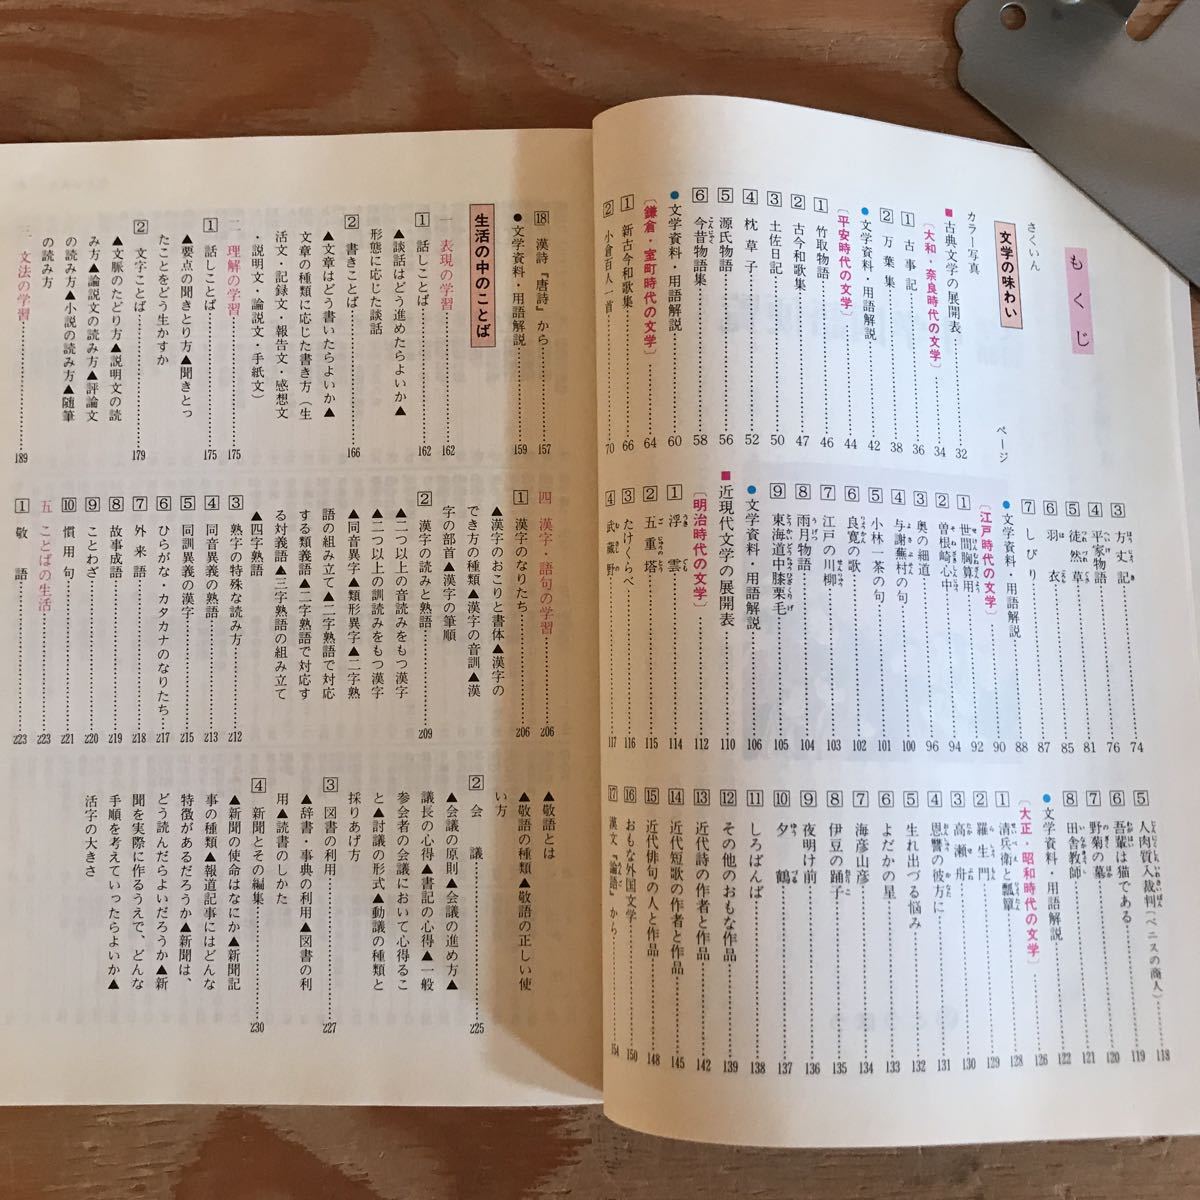 もくじ
さくいん
ページ
文学の味わい
カラー写真
■古典文学の展開表……32
〔大和・奈良時代の文学〕……34
1 古事記……36
2 万葉集……38
●文学資料・用語解説……42
〔平安時代の文学〕……44
1 竹取物語……46
2 古今和歌集……47
3 土佐日記……50
4 枕草子……52
5 源氏物語……56
6 今昔物語集……58
●文学資料・用語解説……60
〔鎌倉・室町時代の文学〕……64
1 新古今和歌集……66
2 小倉百人一首……70
3 方丈記……74
4 平家物語……76
5 徒然草……81
6 羽衣……85
7 しびり……87
●文学資料・用語解説……88
〔江戸時代の文学〕……90
1 世間胸算用……92
2 曽根崎心中……94
3 奥の細道……96
4 与謝蕪村の句……100
5 小林一茶の句……101
6 良寛の歌……102
7 江戸の川柳……103
8 雨月物語……104
9 東海道中膝栗毛……105
●文学資料・用語解説……106
■近現代文学の展開表……110
〔明治時代の文学〕……112
1 浮雲……114
2 五重塔……115
3 たけくらべ……116
4 武蔵野……117
5 人肉質入裁判(ベニスの商人)……118
6 吾輩は猫である……119
7 野菊の墓……120
8 田舎教師……121
●文学資料・用語解説……122
〔大正・昭和時代の文学〕……126
1 清兵衛と瓢箪……128
2 羅生門……129
3 高瀬舟……130
4 恩讐の彼方に……131
5 生れ出づる悩み……132
6 よだかの星……133
7 海彦山彦……134
8 伊豆の踊子……135
9 夜明け前……136
10 夕鶴……137
11 しろばんば……138
12 その他のおもな作品……139
13 近代詩の作者と作品……142
14 近代短歌の作者と作品……145
15 近代俳句の人と作品……148
16 おもな外国文学……150
17 漢文『論語』から……154
18 漢詩『唐詩』から……157
●文学資料・用語解説……159
生活の中のことば
一 表現の学習……162
1 話しことば……162
▲談話はどう進めたらよいか▲
形態に応じた談話
2 書きことば……166
▲文章はどう書いたらよいか▲
文章の種類に応じた書き方(生
活文・記録文・報告文・感想文
・説明文・論説文・手紙文)
二 理解の学習……175
1 話しことば……175
▲要点の聞きとり方▲聞きとっ
たことをどう生かすか
2 文字ことば……179
▲文脈のたどり方▲説明文の読
み方▲論説文の読み方▲評論文
の読み方▲小説の読み方▲随筆
の読み方
三 文法の学習……189
四 漢字・語句の学習……206
1 漢字のなりたち……206
▲漢字のおこりと書体▲漢字の
でき方の種類▲漢字の音訓▲漢
字の部首▲漢字の筆順
2 漢字の読みと熟語……209
▲二つ以上の音読みをもつ漢字
▲二つ以上の訓読みをもつ漢字
▲同音異字▲類形異字▲二字熟
語の組み立て▲二字熟語で対応
する類義語▲二字熟語で対応す
る対義語▲三字熟語の組み立て
▲四字熟語
3 熟字の特殊な読み方……212
4 同音異義の熟語……213
5 同訓異義の漢字……215
6 ひらがな・カタカナのなりたち…217
7 外来語……218
8 故事成語……219
9 ことわざ……220
10 慣用句……221
五 ことばの生活……223
1 敬語……223
▲敬語とは
▲敬語の種類▲敬語の正しい使
い方
2 会議……225
▲会議の原則▲会議の進め方▲
議長の心得▲書記の心得▲一般
参会者の会議において心得るこ
と▲討議の形式▲動議の種類と
採りあげ方
3 図書の利用……227
▲辞書・事典の利用▲図書の利
用▲読書のしかた
4 新聞とその編集……230
▲新聞の使命はなにか▲新聞記
事の種類▲報道記事にはどんな
特徴があるだろうか▲新聞は、
どう読んだらよいだろうか▲新
聞を実際に作るうえで、どんな
手順を考えていったらよいか▲
活字の大きさ